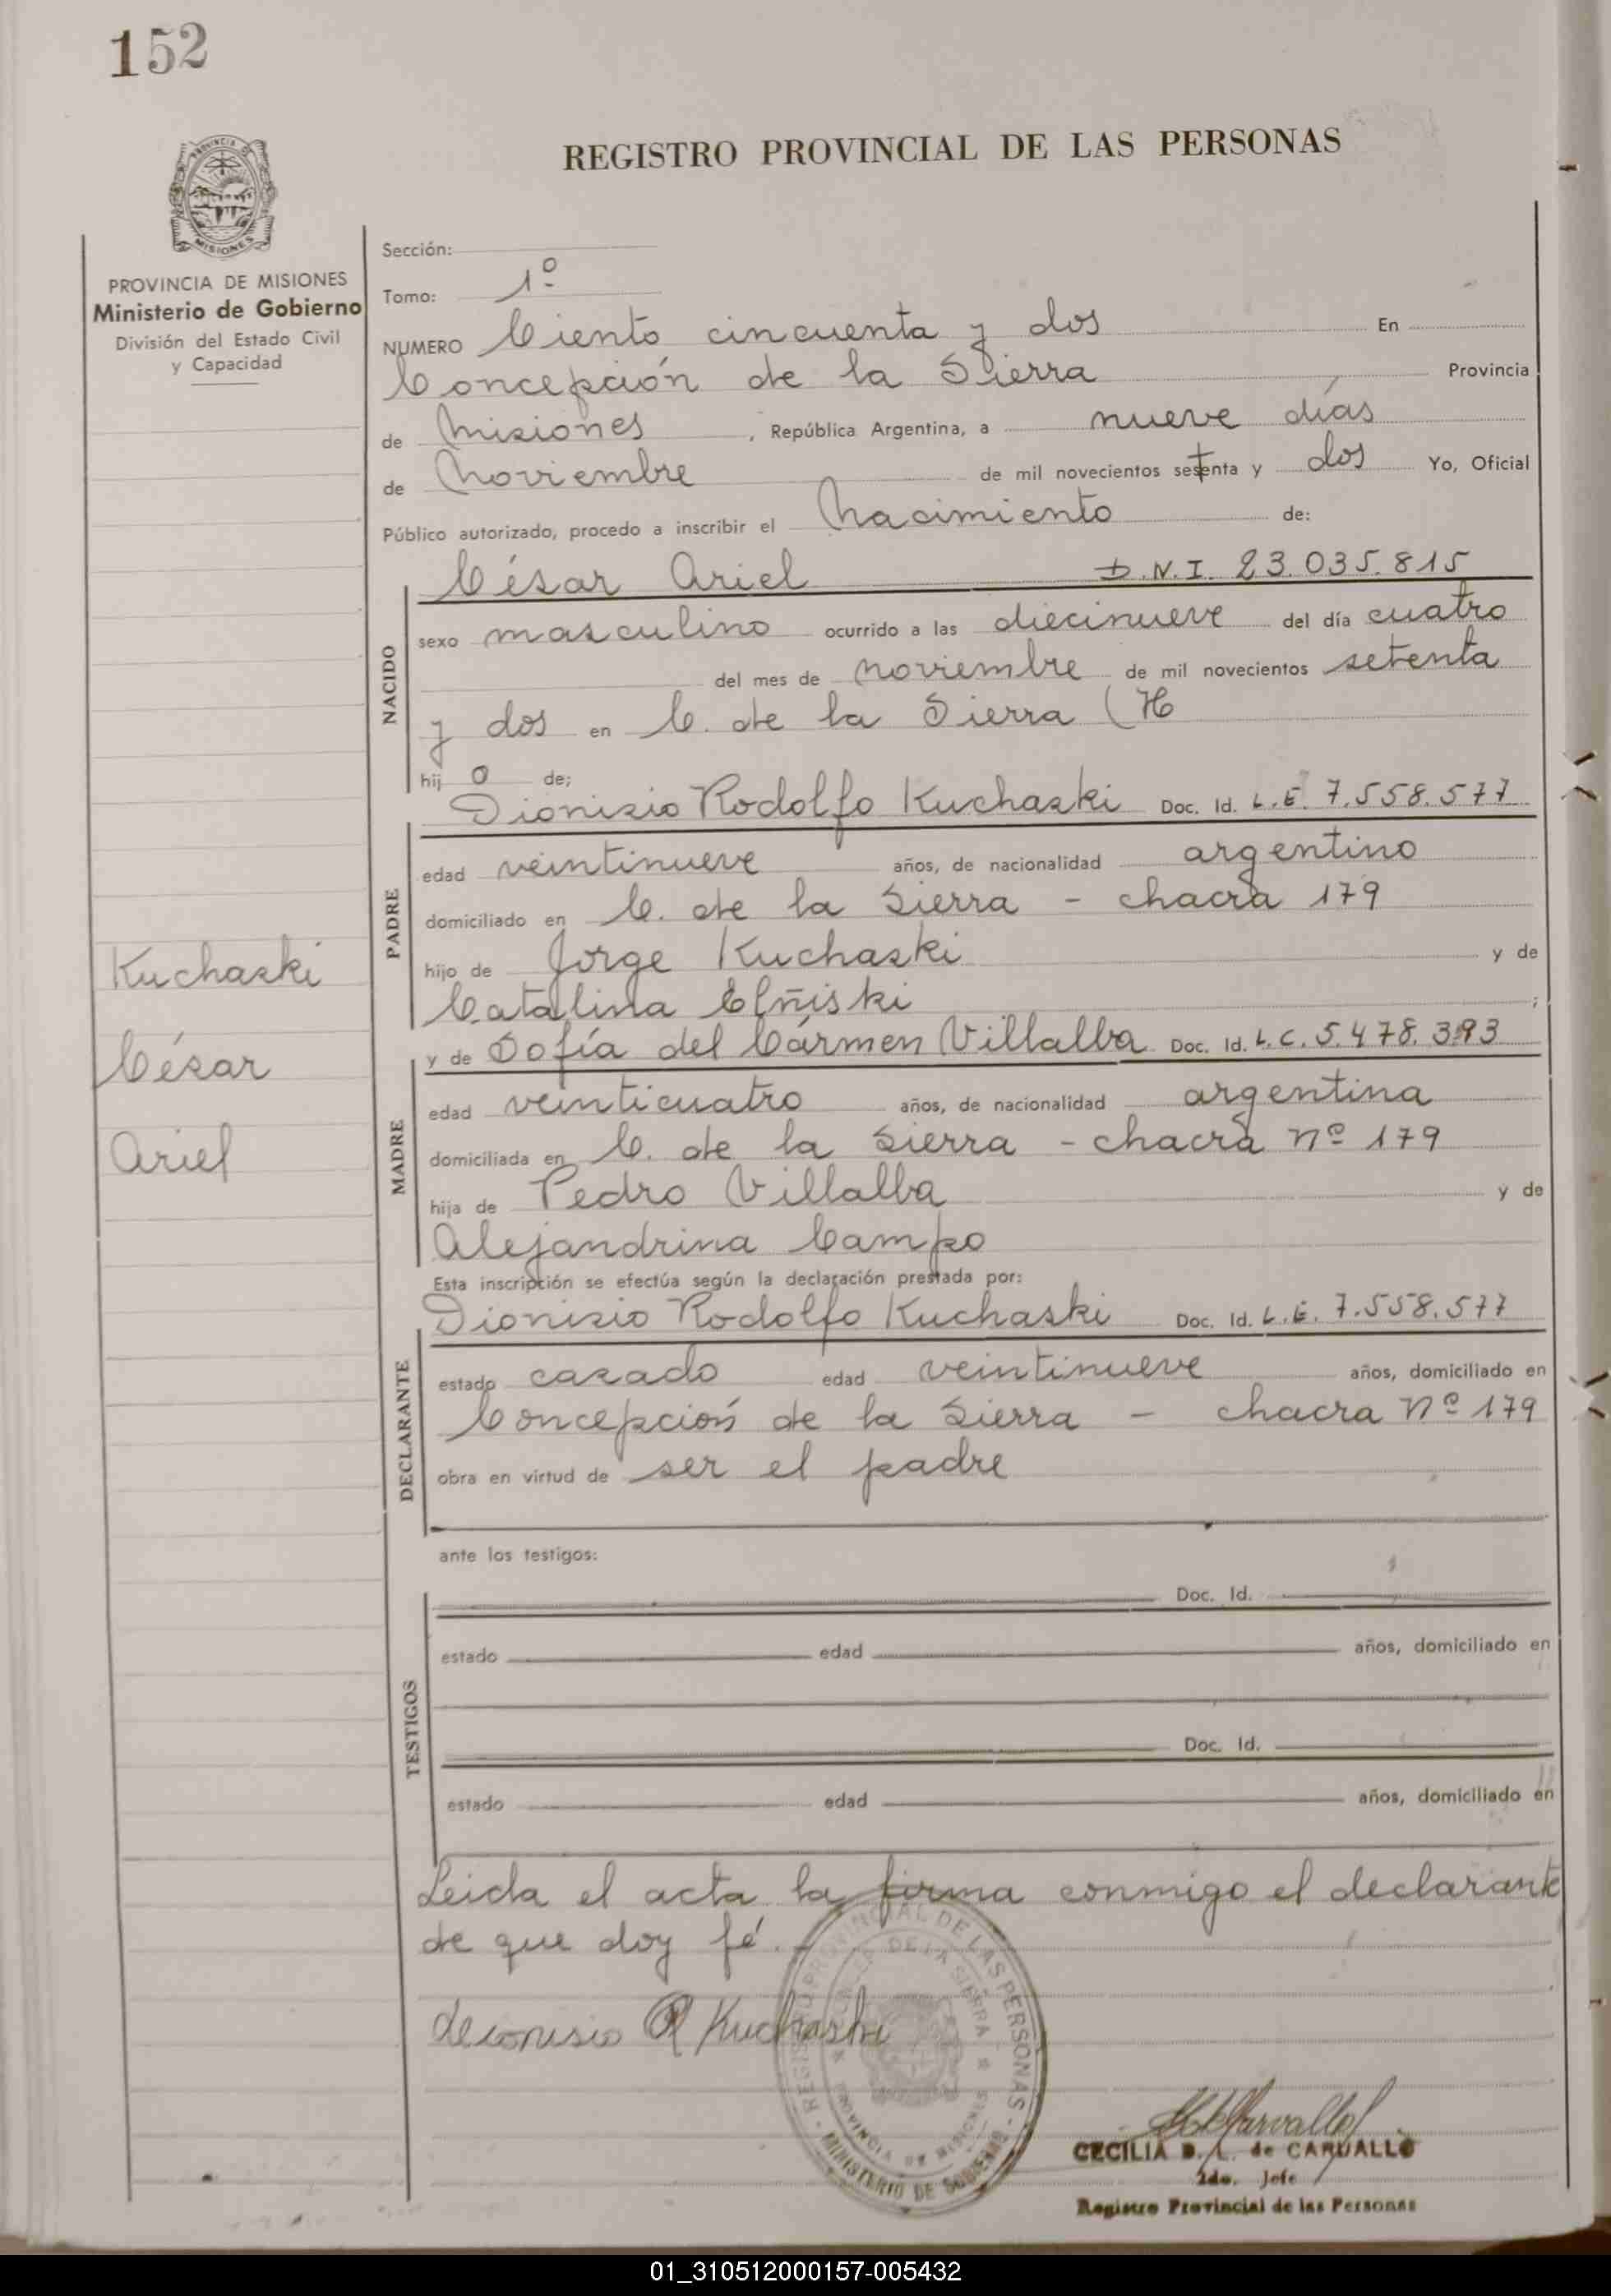 152
REGISTRO PROVINCIAL DE LAS PERSONAS
PROVINCIA DE MISIONES
Ministerio de Gobierno
División del Estado Civil
y Capacidad
Sección:
Tomo: 1º
NUMERO Ciento cincuenta y dos En
Concepción de la Sierra Provincia
de Misiones, República Argentina, a nueve días
de Noviembre de mil novecientos setenta y dos Yo, Oficial
Público autorizado, procedo a inscribir el Nacimiento de:
NACIDO
César Ariel D.N.I. 23.035.815
sexo masculino ocurrido a las diecinueve del día cuatro
del mes de noviembre de mil novecientos setenta
y dos en C. de la Sierra (H
hij o de;
PADRE
Dionisio Rodolfo Kuchaski Doc. Id. L.E. 7.558.577
edad veintinueve años, de nacionalidad argentino
domiciliado en C. de la Sierra - chacra 179
hijo de Jorge Kuchaski y de
Catalina Elñiski ;
MADRE
y de Sofía del Cármen Villalba Doc. Id. L.C. 5.478.393
edad veinticuatro años, de nacionalidad argentina
domiciliada en C. de la Sierra - chacra nº 179
hija de Pedro Villalba y de
Alejandrina Campo
Kuchaski
César
Ariel
Esta inscripción se efectúa según la declaración prestada por:
DECLARANTE
Dionisio Rodolfo Kuchaski Doc. Id. L.E. 7.558.577
estado casado edad veintinueve años, domiciliado en
Concepción de la Sierra - chacra nº 179
obra en virtud de ser el padre
ante los testigos:
TESTIGOS
Doc. Id.
estado edad años, domiciliado en
Doc. Id.
estado edad años, domiciliado en
Leida el acta la firma conmigo el declarante
de que doy fé.-
R Kuchaski
REGISTRO PROVINCIAL DE LAS PERSONAS - MINISTERIO DE GOBIERNO
DE LA SIERRA * PROVINCIA DE MISIONES *
CECILIA B. L. de CARVALLO
2do. Jefe
Registro Provincial de las Personas
01_310512000157-005432